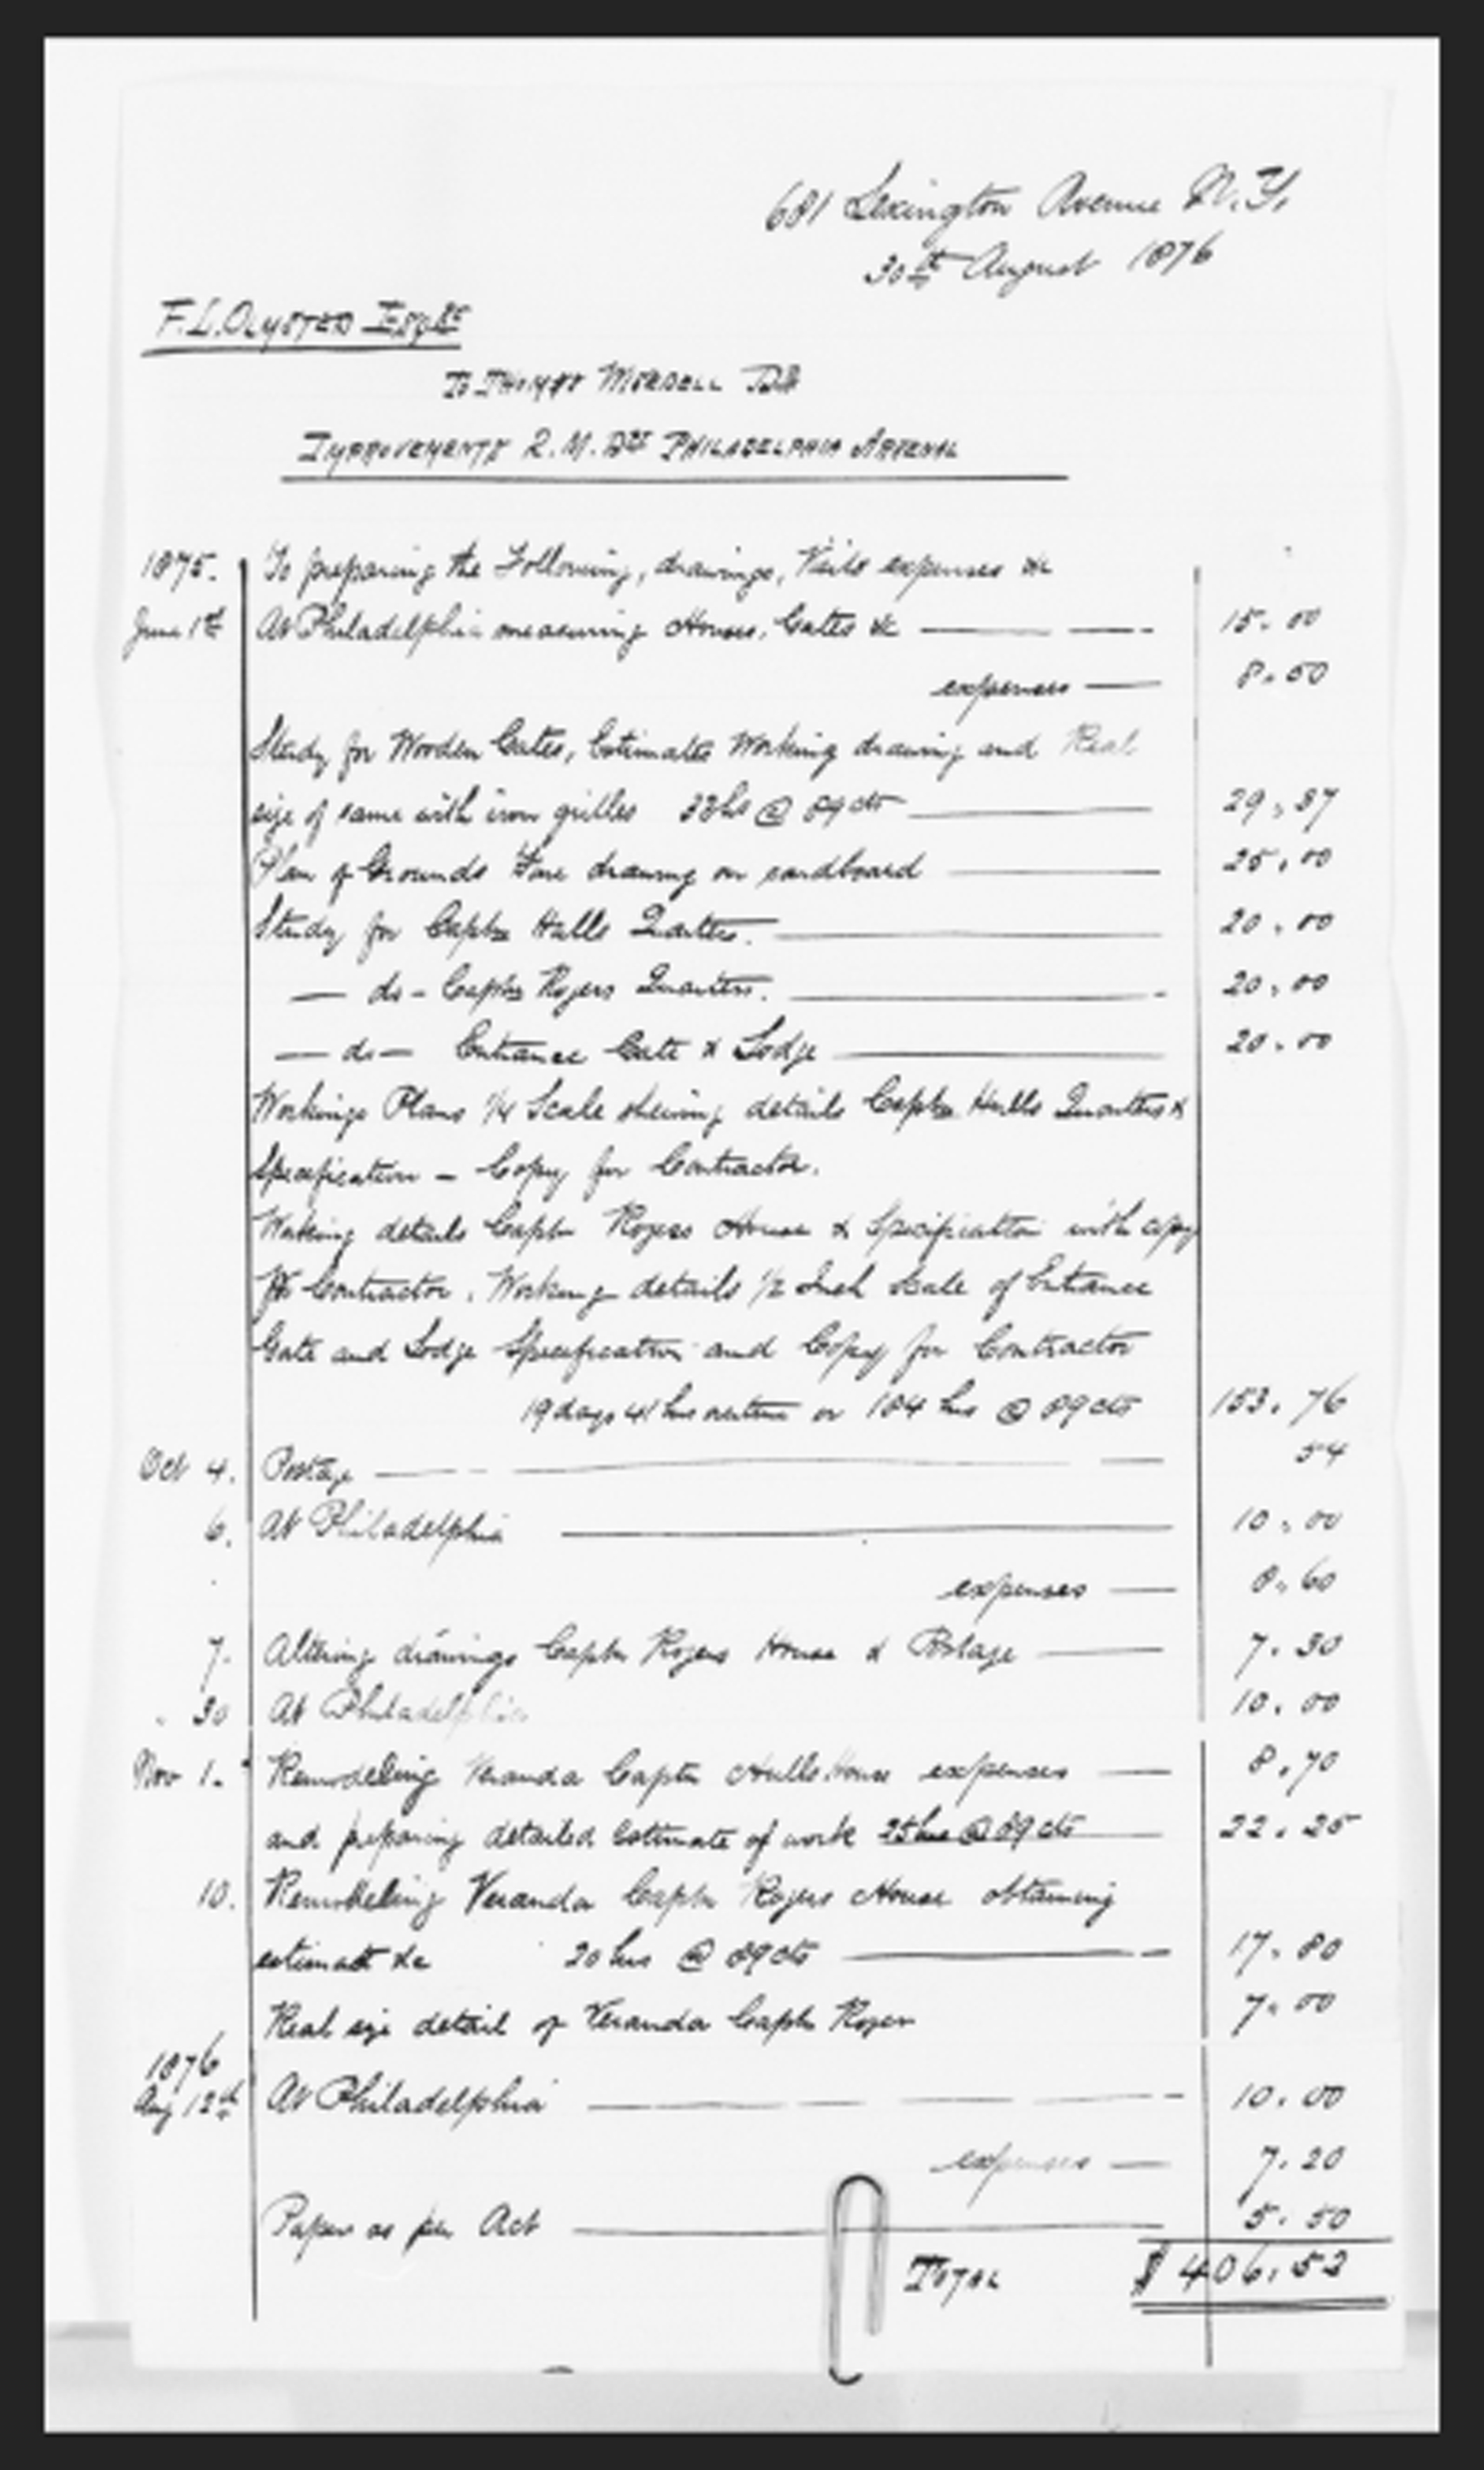 681 Lexington Avenue N.Y.
30th August 1876
F.L. OLMSTED ESQRE
To THOMAS WISEDELL DR
IMPROVEMENTS Q.M. DPT PHILADELPHIA ARSENAL
1875. To preparing the Following, drawings, Visits expenses &c
June 1st At Philadelphia measuring Houses, Gates &c 15.00
expenses 8.50
Study for Wooden Gates, Estimates Working drawing and Real
size of same with iron grilles 33hs @ 89cts 29.37
Plan of Grounds Fine drawing on cardboard 25.00
Study for Captn Hulls Quarters. 20.00
— do — Captn Rogers Quarters. 20.00
— do — Entrance Gate & Lodge 20.00
Workings Plans 1/4 Scale shewing details Captn Hulls Quarters &
Specification — Copy for Contractor.
Working details Captn Rogers House & Specification with copy
for Contractor. Working details 1/2 Inch Scale of Entrance
Gate and Lodge Specification and Copy for Contractor
19 days 41 hrs or 184 hrs @ 89 cts 153.76
Oct 4. Postage 54
6. At Philadelphia 10.00
expenses 8.60
7. Altering drawings Captn Rogers House & Postage 7.30
" 30 At Philadelphia 10.00
Nov 1. Remodeling Veranda Captn Hulls House expenses 8.70
and preparing detailed Estimate of work 25 hrs @ 89 cts 22.25
10. Remodelling Veranda Captn Rogers House obtaining
estimate &c 20 hrs @ 89 cts 17.80
Real size detail of Veranda Captn Rogers 7.00
1876
Aug 12th At Philadelphia 10.00
expenses 7.20
Paper as per Act 5.50
TOTAL $406.52